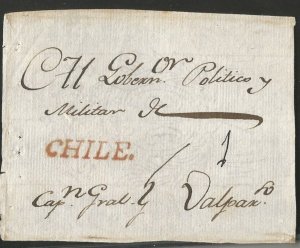 Al Gobern.or Politico y
Militar de
CHILE.
1
Cap.n Gral. Valpar.o